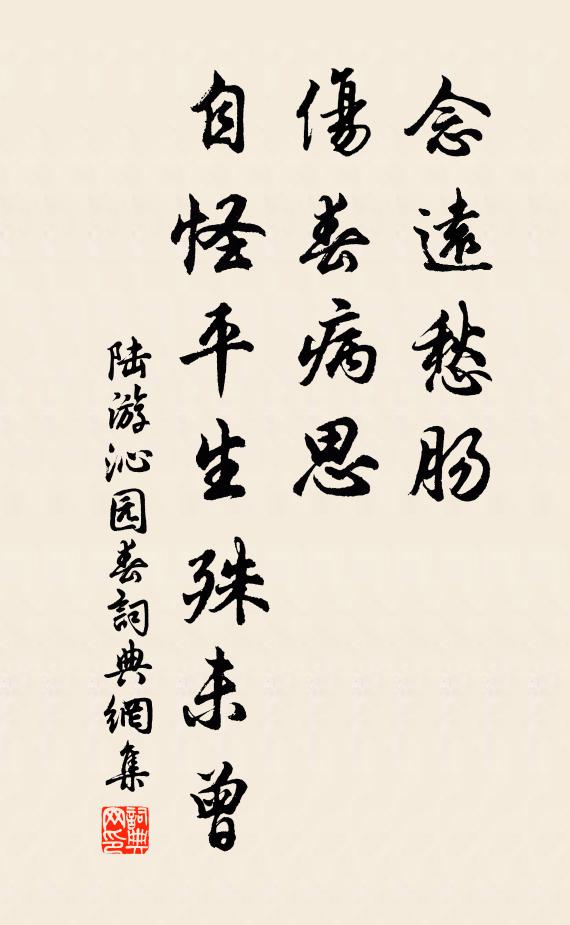 念遠愁肠
傷春病思
自怪平生殊未曾
陆游沁园春詞典網集
詞典网印